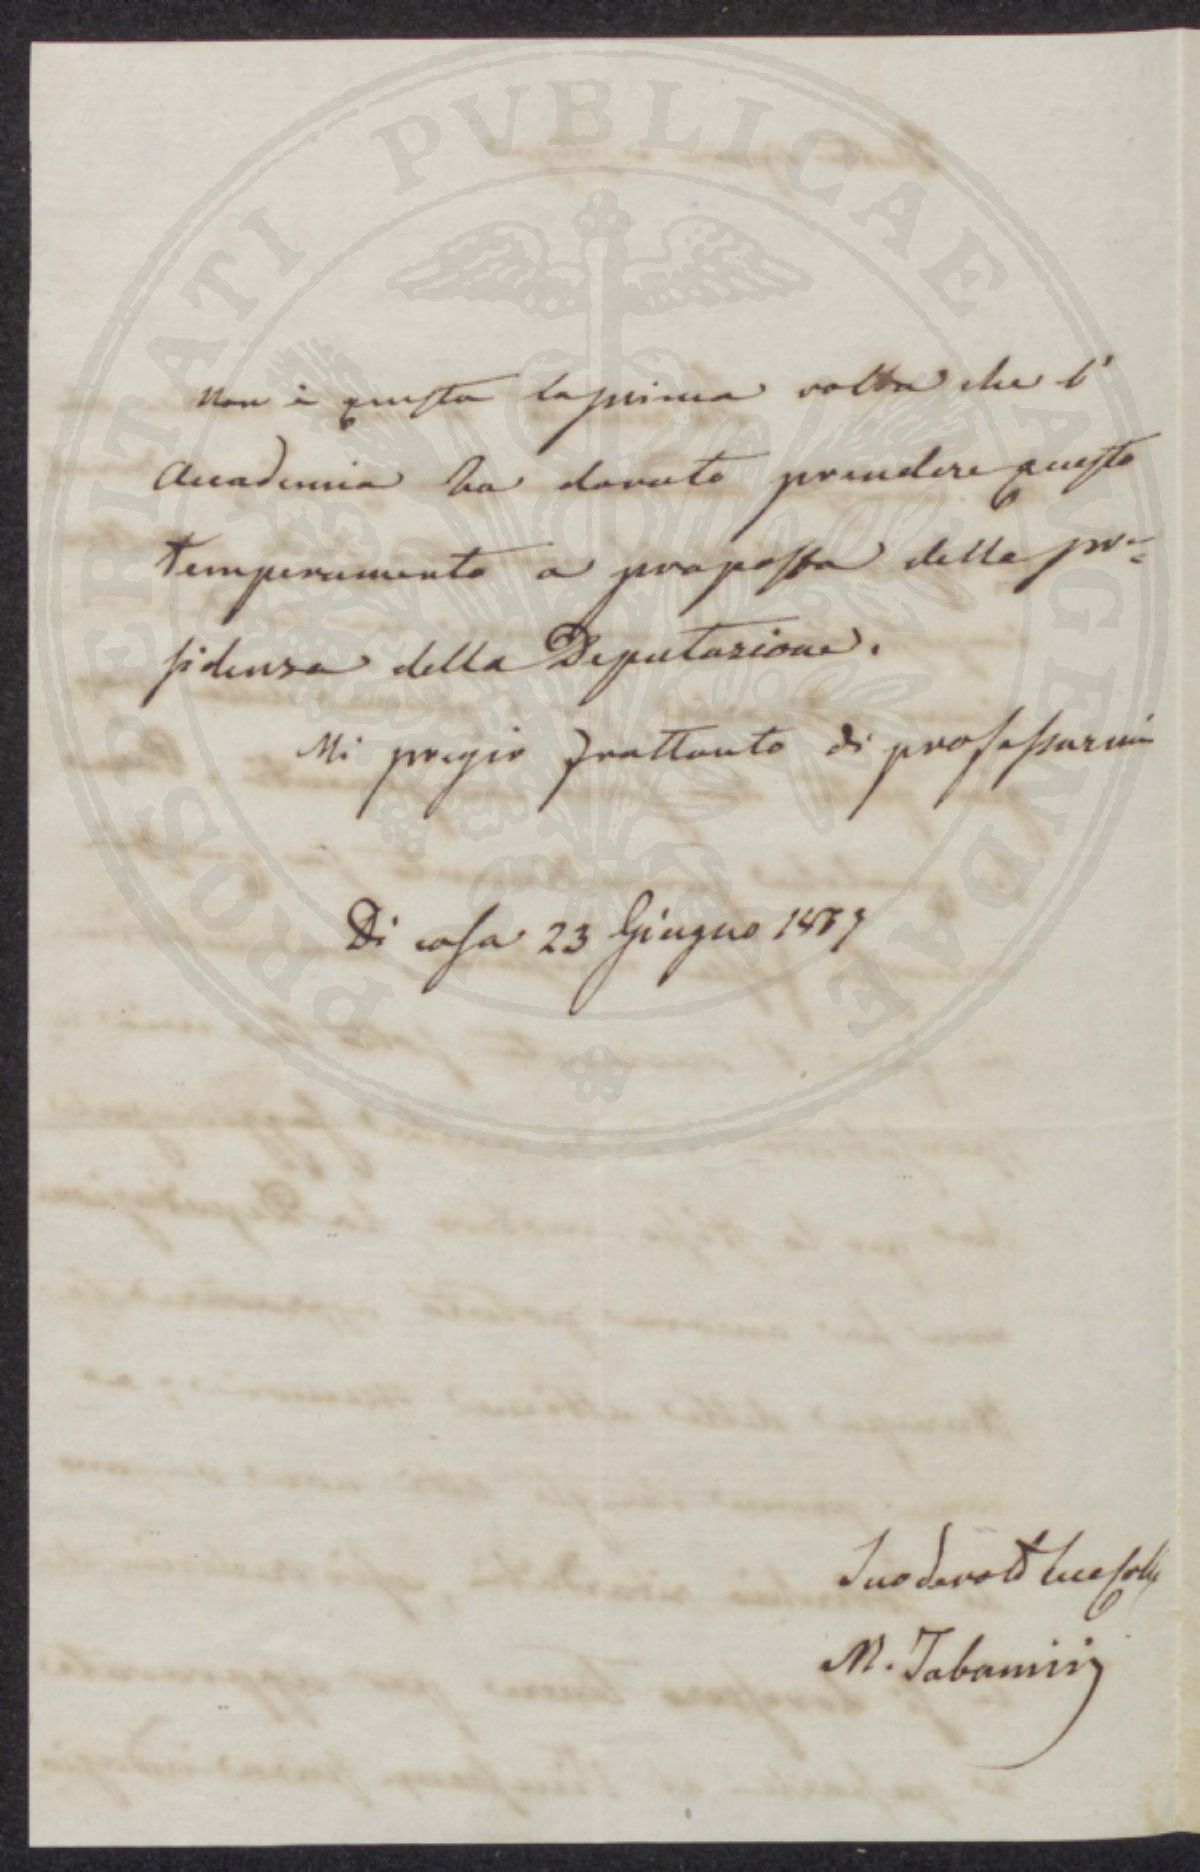 PROSPERITATI PVBLICAE AVGENDAE
Non è questa la prima volta che l'
Accademia ha dovuto prendere questo
temperamento a proposta della pre=
sidenza della Deputazione.
Mi pregio frattanto di professarmi
Di casa 23 Giugno
Suo devot
M. Tabarrini